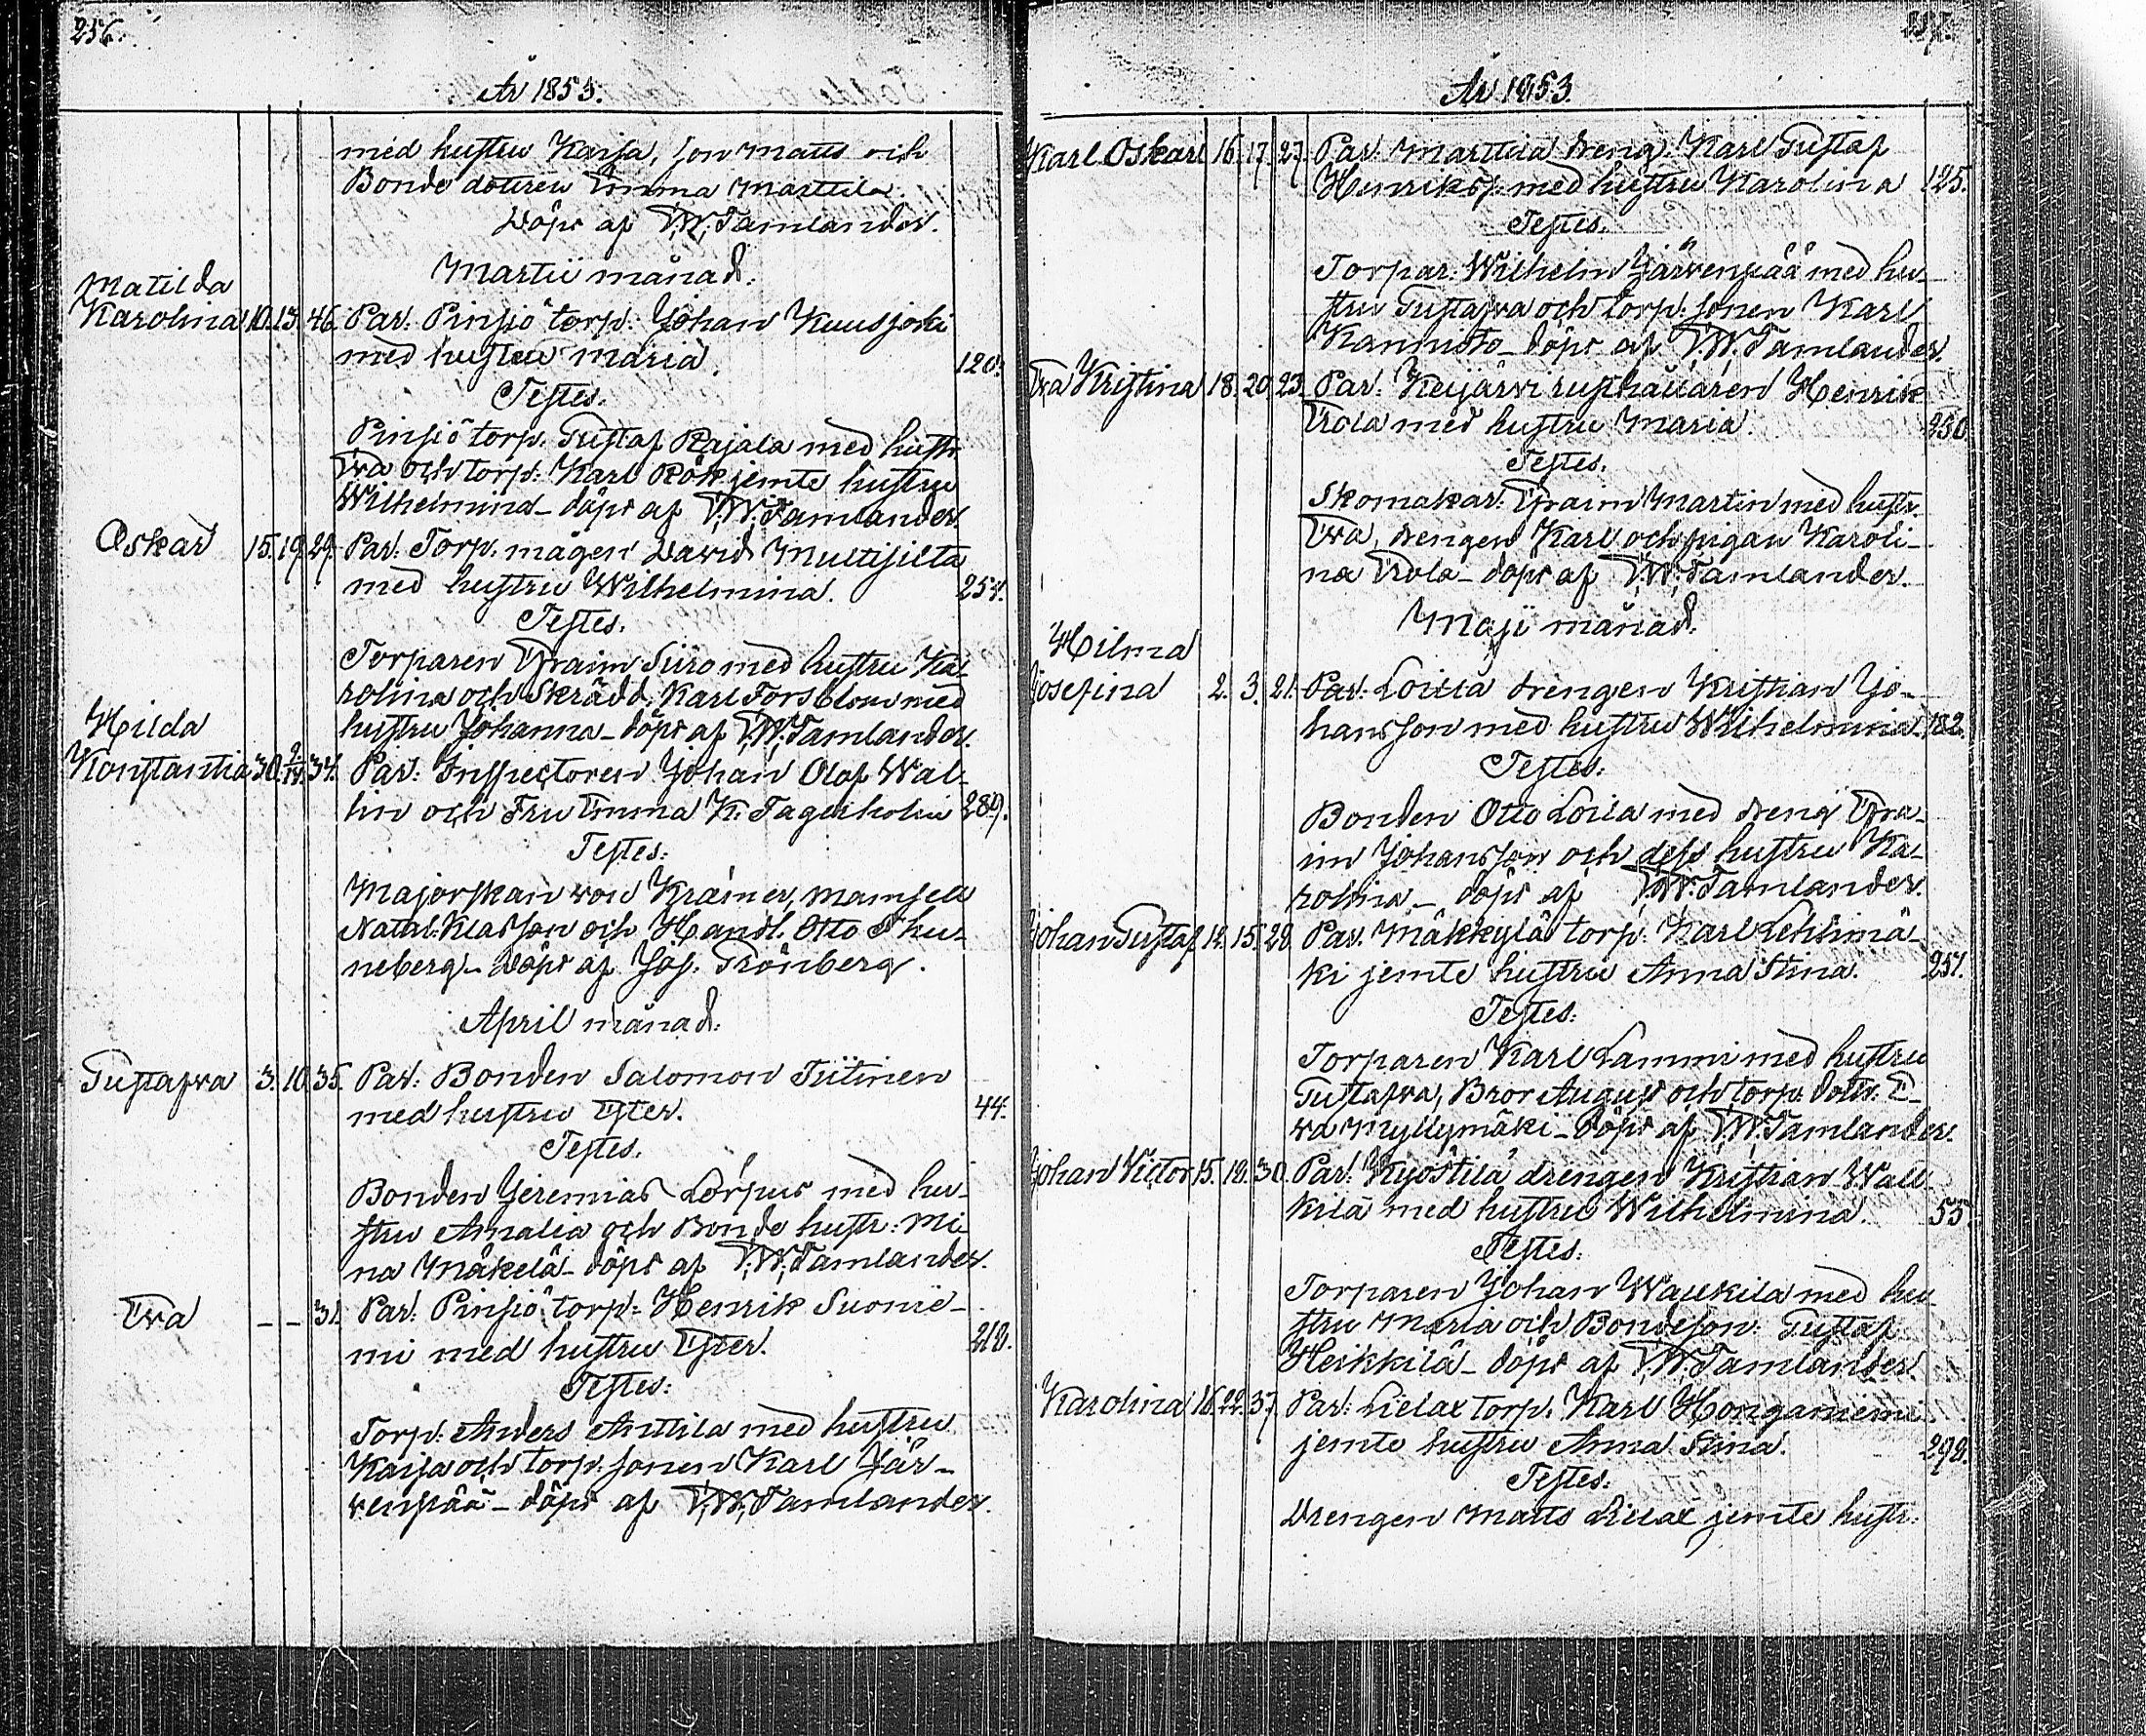 256.
År 1853.
med hustru Kaisa, son Matts och
Bonde dottren Emma Marttila
Döpt af F. W. Tamlander.
Martii månad.
Matilda
Karolina 10. 13. 46. Par: Pinsiö torp: Johan Kuusjoki
med hustru Maria. 120.
Testes.
Pinsiö torp. Gustaf Rajala med hustr.
Eva och torp: Karl Rök jemte hustru
Wilhelmina _ döpt af F. W. Tamlander.
Oskar 15. 19. 29. Par: Torp. mågen David Multisilta
med hustru Wilhelmina. 254.
Testes.
Torparen Efraim Siiro med hustru Ka-
rolina och Skrädd. Karl Forsblom med
hustru Johanna _ döpt af F. W. Tamlander.
Hilda
Konstantia 30. 9/14. 34. Par: Inspectoren Johan Olof Wal-
lin och Fru Emma K. Fagerholm 289.
Testes:
Majorskan von Kræmer, Mamsell
Natal: Klasson och Handl. Otto Thu-
neberg _ Döpt af Jos. Grönberg.
April månad.
Gustafva 3. 10. 35. Par: Bonden Salomon Tiitinen
med hustru Ester. 44.
Testes.
Bonden Jeremias Lorpus med hu-
stru Amalia och Bonde hustr: Mi-
na Mäkelä _ döpt af F. W. Tamlander.
Eva _ _ 31. Par: Pinsiö torp: Henrik Suonie-
mi med hustru Ester. 218.
Testes:
Torp: Anders Anttila med hustru
Kaisa och torp: sonen Karl Jär-
venpää _ döpt af F. W. Tamlander.
257.
År 1853.
Karl Oskar 16. 17. 27. Par: Marttila dreng: Karl Gustaf
Henrikss. med hustru Karolina 125.
Testes.
Torpar: Wilhelm Järvenpää med hu-
stru Gustafva och torp: sonen Karl
Kannisto _ döpt af F. W. Tamlander.
Eva Kristina 18. 20. 23. Par: Keijärvi rusthållaren Henrik
Erola med hustru Maria. 230.
Testes.
Skomakar: Efraim Martin med hustr.
Eva, drengen Karl och pigan Karoli-
na Erola _ döpt af F. W. Tamlander.
Maji månad.
Hilma
Josefina 2. 3. 21. Par: Loila drengen Kristian Jo-
hansson med hustru Wilhelmina. 182.
Testes:
Bonden Otto Loila med dreng Efra-
im Johansson och dess hustru Ka-
rolina _ döpt af F. W. Tamlander.
Johan Gustaf 14. 15. 28. Par. Mäkkylä torp: Karl Lehtimä-
ki jemte hustru Anna Stina. 257.
Testes:
Torparen Karl Lammi med hustru
Gustafva, Bror August och torp: dottr. E-
va Myllymäki _ Döpt af F. W. Tamlander.
Johan Victor 15. 18. 30. Par: Kyöstilä drengen Kristian Wall-
kila med hustru Wilhelmina. 55.
Testes:
Torparen Johan Wallkila med hu-
stru Maria och Bondeson: Gustaf
Heikkilä _ döpt af F. W. Tamlander.
Karolina 16. 22. 37. Par: Lielax torp. Karl Honganiemi
jemte hustru Anna Stina. 298.
Testes:
Drengen Matts Lielax jemte hustr.